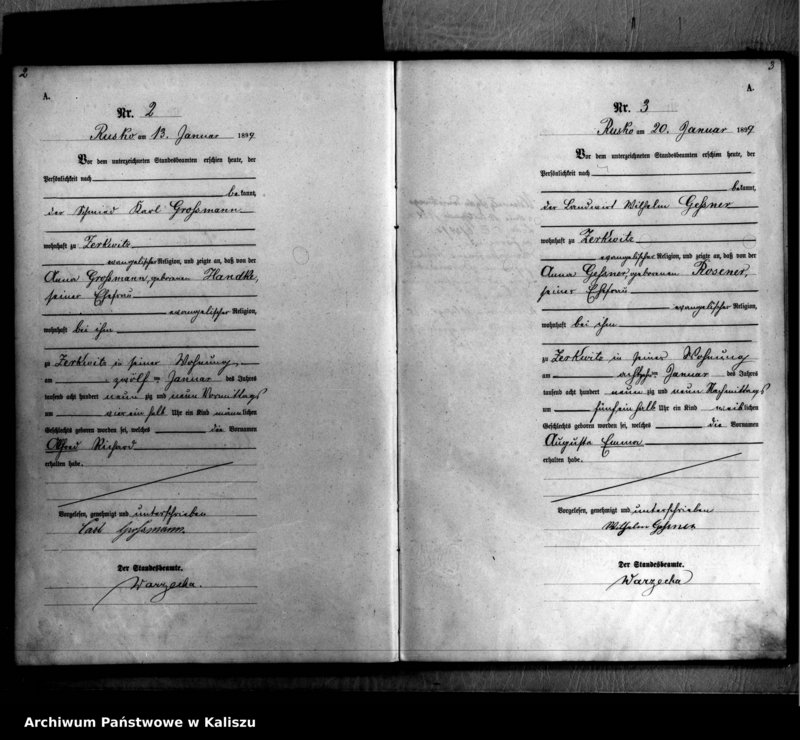 2
A.
Nr. 2
Rusko am 13. Januar 1899
Vor dem unterzeichneten Standesbeamten erschien heute, der
Persönlichkeit nach
bekannt,
der Schmied Karl Großmann
wohnhaft zu Zerkwitz
evangelischer Religion, und zeigte an, daß von der
Anna Großmann, geborenen Handke,
seiner Ehefrau
evangelischer Religion,
wohnhaft bei ihm
zu Zerkwitz in seiner Wohnung,
am zwölften Januar des Jahres
tausend acht hundert neunzig und neun Vormittags
um vier ein halb Uhr ein Kind männlichen
Geschlechts geboren worden sei, welches die Vornamen
Alfred Richard
erhalten habe.
Vorgelesen, genehmigt und unterschrieben
Karl Großmann.
Der Standesbeamte.
Warzecha.
3
A.
Nr. 3
Rusko am 20. Januar 1899
Vor dem unterzeichneten Standesbeamten erschien heute, der
Persönlichkeit nach
bekannt,
der Landwirt Wilhelm Geßner
wohnhaft zu Zerkwitz
evangelischer Religion, und zeigte an, daß von der
Anna Geßner, geborenen Rosener,
seiner Ehefrau
evangelischer Religion,
wohnhaft bei ihm
zu Zerkwitz in seiner Wohnung
am achtzehnten Januar des Jahres
tausend acht hundert neunzig und neun Nachmittags
um fünf ein halb Uhr ein Kind weiblichen
Geschlechts geboren worden sei, welches die Vornamen
Augusta Emma
erhalten habe.
Vorgelesen, genehmigt und unterschrieben
Wilhelm Geßner
Der Standesbeamte.
Warzecha
Archiwum Państwowe w Kaliszu